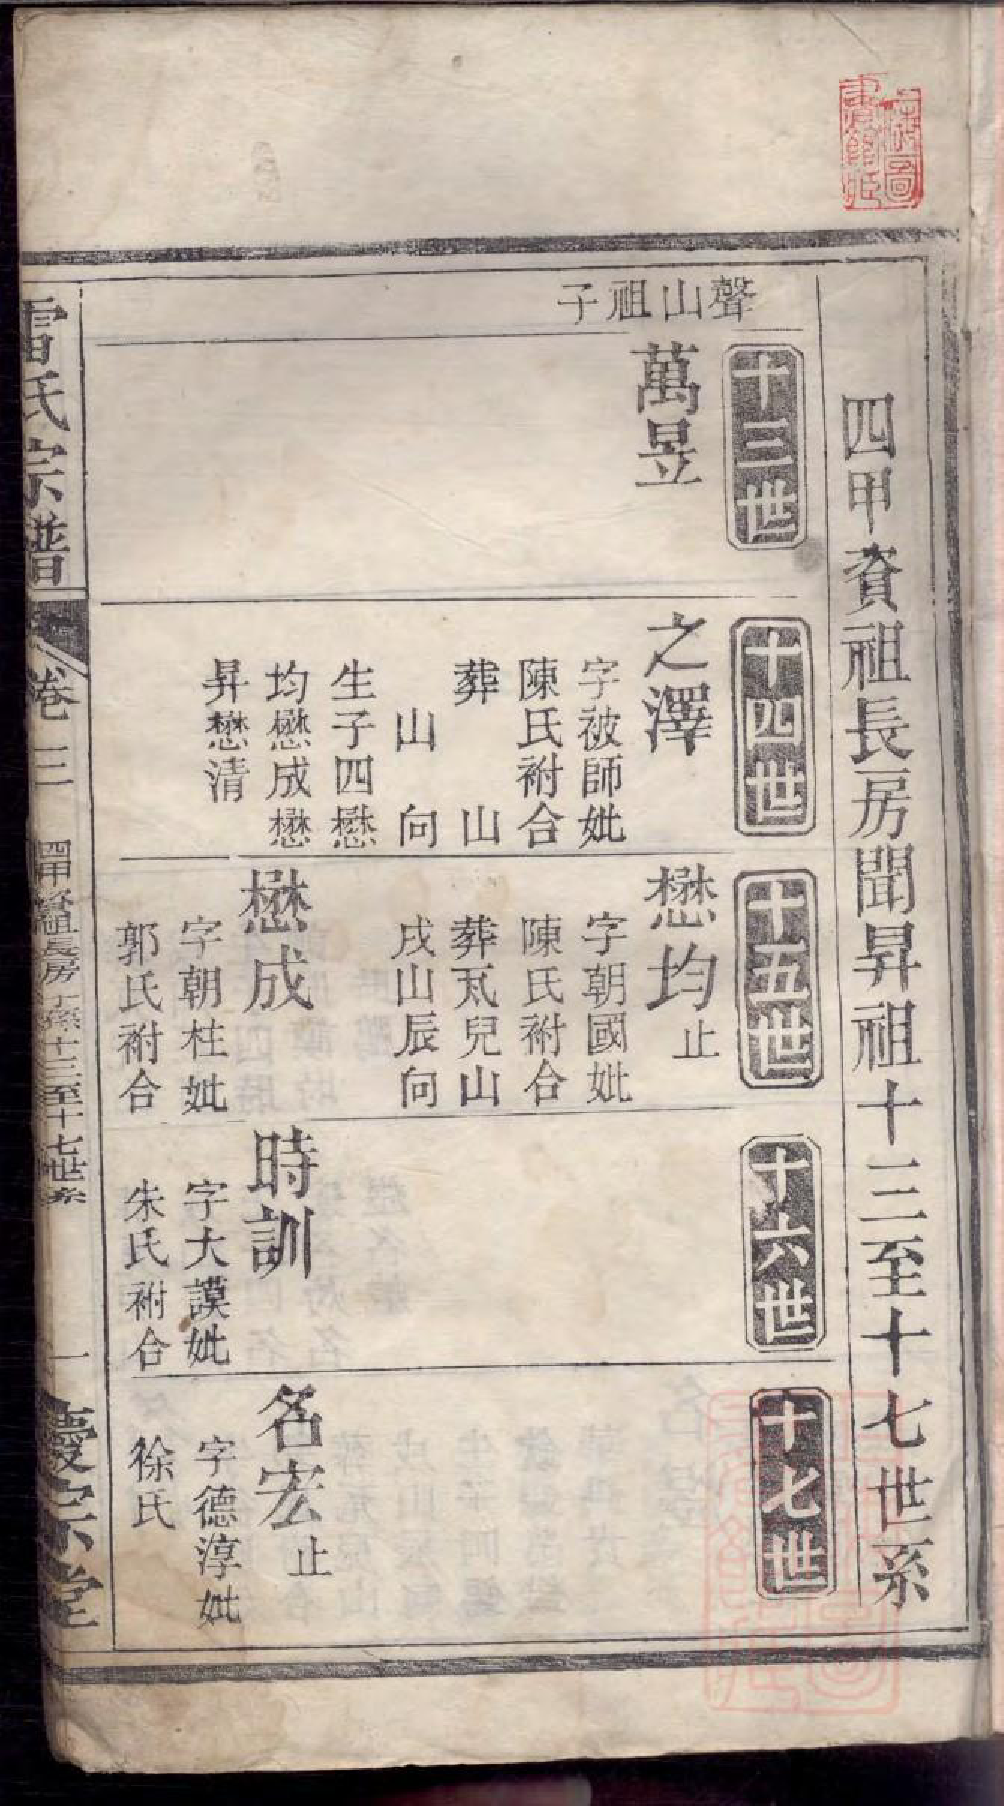 四甲資祖長房聞昇祖十三至十七世系
聲山祖子
十三世
萬昱
十四世
之澤
字被師妣
陳氏祔合
葬　山
山　向
生子四懋
均懋成懋
昇懋清
十五世
懋均止
字朝國妣
陳氏祔合
葬瓦兒山
戌山辰向
懋成
字朝柱妣
郭氏祔合
十六世
時訓
字大謨妣
朱氏祔合
十七世
名宏止
字德淳妣
徐氏
雷氏宗譜
卷三
四甲資祖長房子孫十三至十七世系
一
慶宗堂